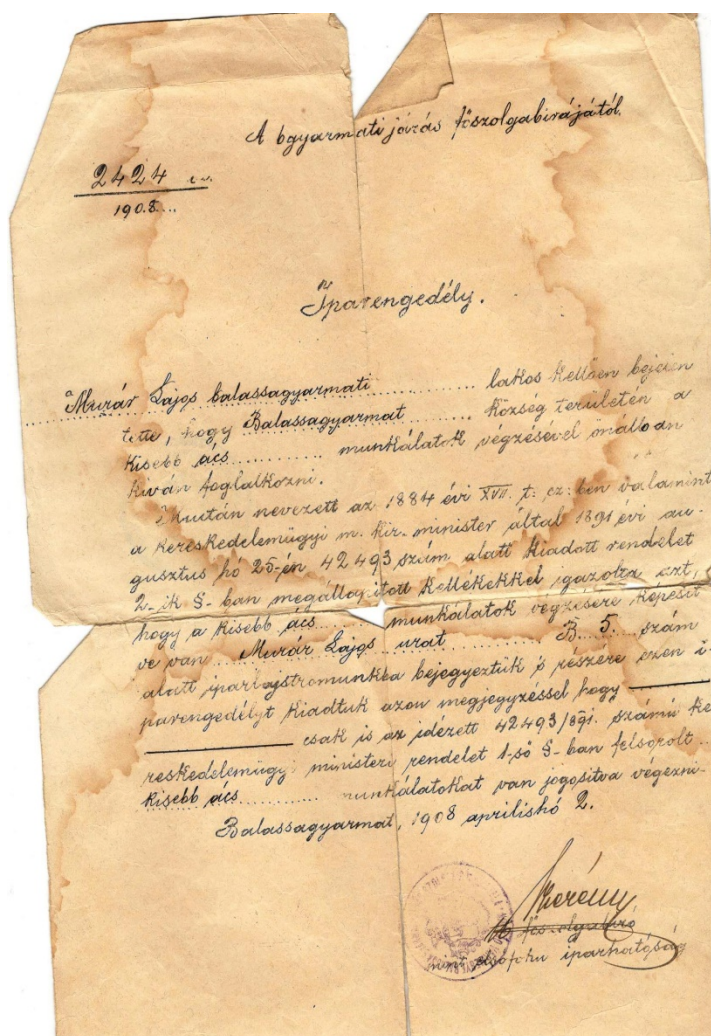 A bgyarmati járás főszolgabirájától.
2424
1908...
Iparengedély.
Murár Lajos balassagyarmati lakos kellően bejelen
tette, hogy Balassagyarmat község területén a
kisebb ács munkálatok végzésével önállóan
kiván foglalkozni.
Miután nevezett az 1884 évi XVII. t: cz: ben valamint
a kereskedelemügyi m. kir. minister által 1891 évi au-
gusztus hó 25-én 42493 szám alatt kiadott rendelet
2-ik §-ban megállapitott kellékekkel igazolta azt,
hogy a kisebb ács munkálatok végzésére képesit
ve van Murár Lajos urat B 5. szám
alatt iparlajstromunkba bejegyeztük s részére ezen i-
parengedélyt kiadtuk azon megjegyzéssel hogy
csak is az idézett 42493/891. számú ke
reskedelemügyi ministeri rendelet 1-ső §-ban felsorolt
kisebb ács munkálatokat van jogositva végezni-
Balassagyarmat, 1908 aprilishó 2.
főszolgabiró
mint elsőfoku iparhatóság